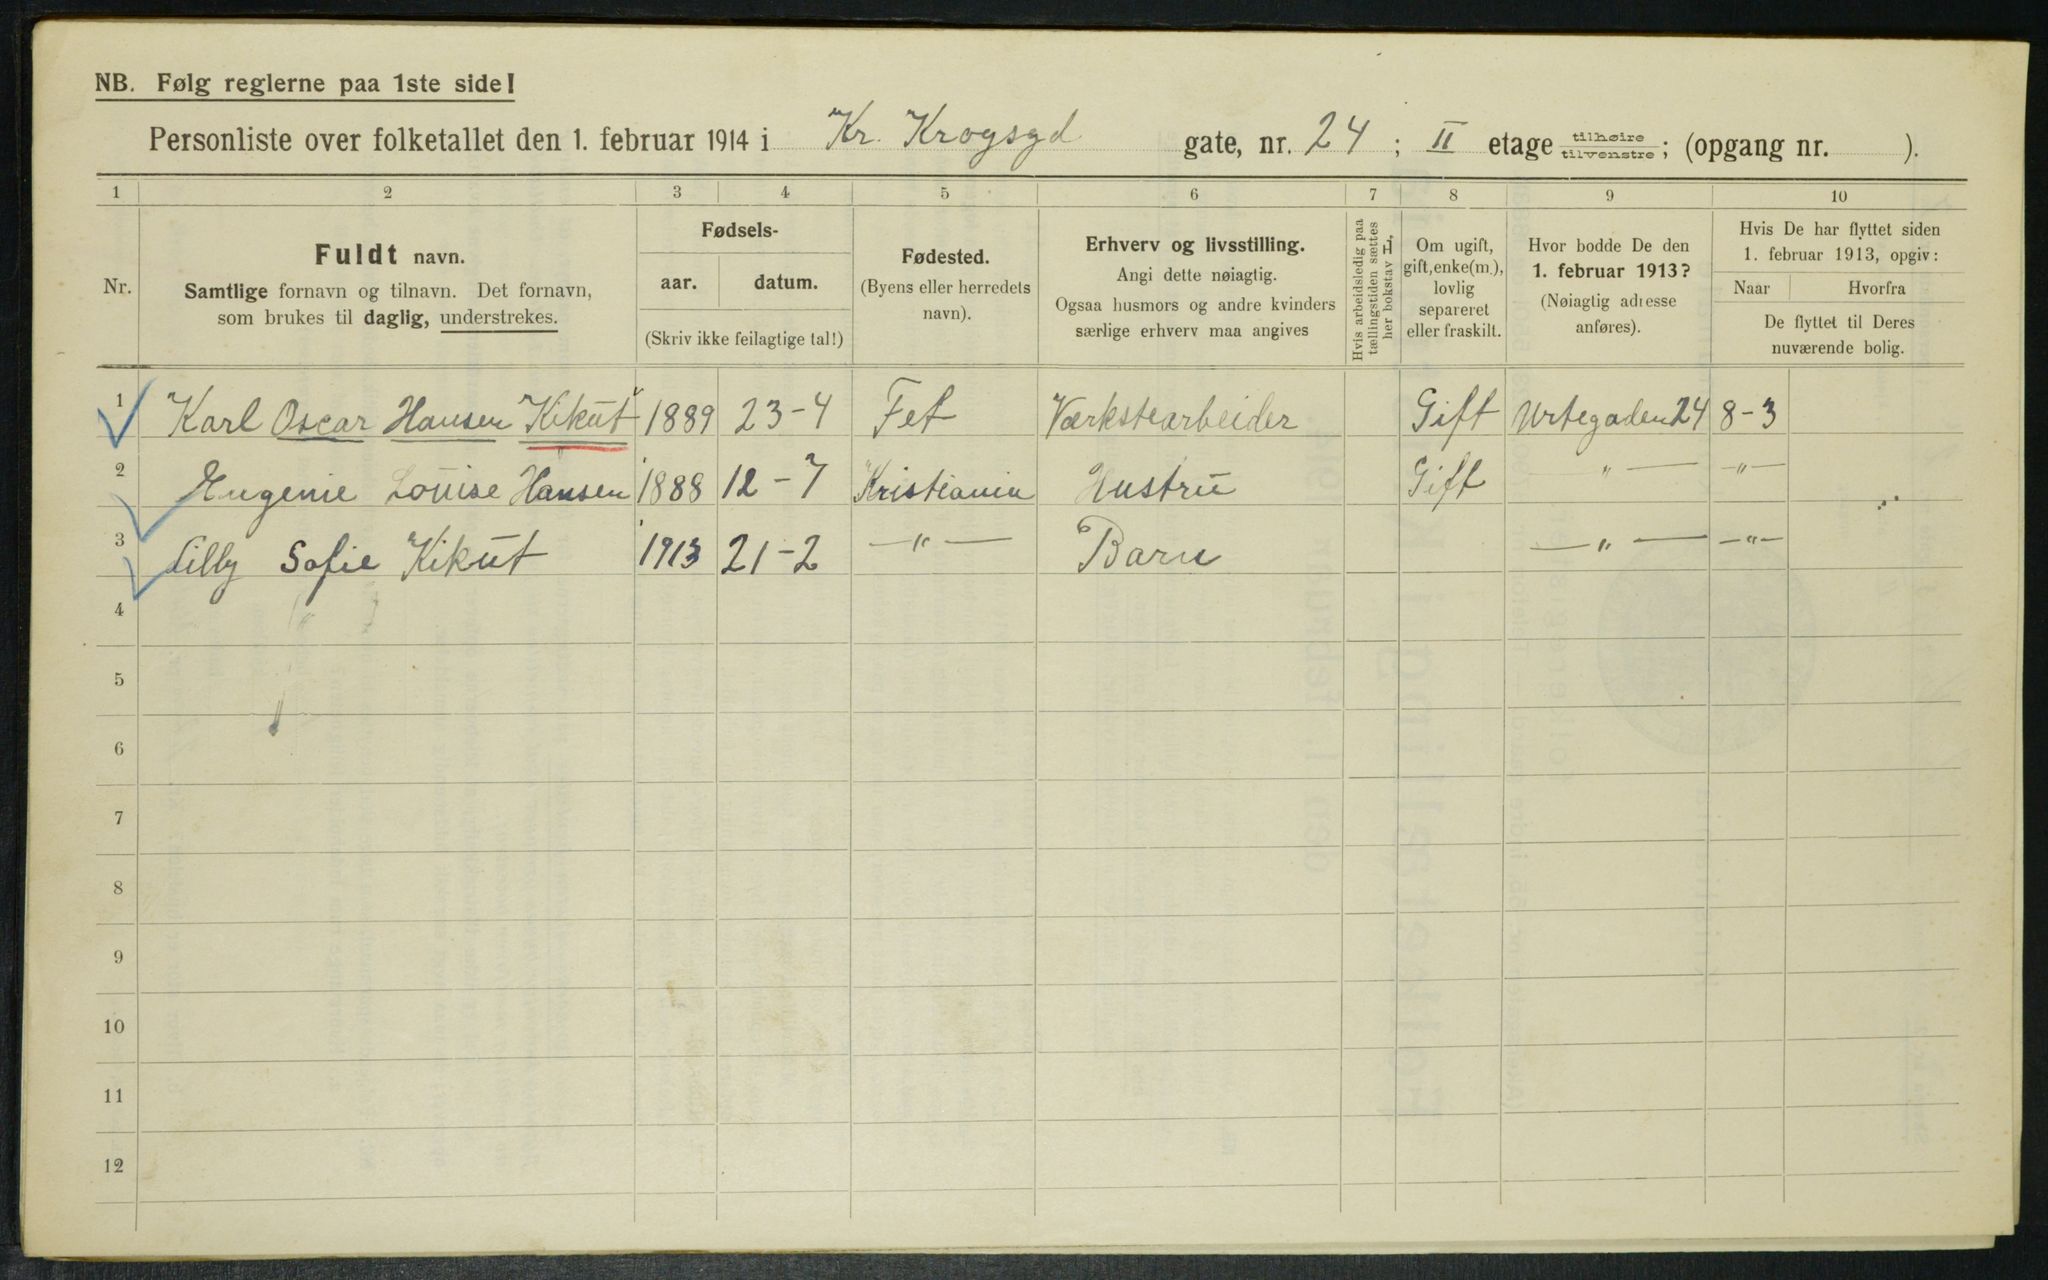 NB. Følg reglerne paa 1ste side!
Personliste over folketallet den 1. februar 1914 i Kr. Krogsgd gate, nr. 24; II etage tilhøire/tilvenstre; (opgang nr. ).
1 2 3 4 5 6 7 8 9 10
Nr.
Fuldt navn.
Samtlige fornavn og tilnavn. Det fornavn,
som brukes til daglig, understrekes.
Fødsels-
aar. datum.
(Skriv ikke feilagtige tal!)
Fødested.
(Byens eller herredets
navn).
Erhverv og livsstilling.
Angi dette nøiagtig.
Ogsaa husmors og andre kvinders
særlige erhverv maa angives
Hvis arbeidsledig paa
tællingstiden sættes
her bokstav L,
Om ugift,
gift, enke(m.),
lovlig
separeret
eller fraskilt.
Hvor bodde De den
1. februar 1913?
(Nøiagtig adresse
anføres).
Hvis De har flyttet siden
1. februar 1913, opgiv:
Naar Hvorfra
De flyttet til Deres
nuværende bolig.
1 Karl Oscar Hansen Kikut 1889 23-4 Fet Værkstearbeider Gift Urtegaden 24 8-3
2 Eugenie Louise Hansen 1888 12-7 Kristiania Hustru Gift — " — —"—
3 Lilly Sofie Kikut 1913 21-2 — " — Barn — " — —"—
4
5
6
7
8
9
10
11
12